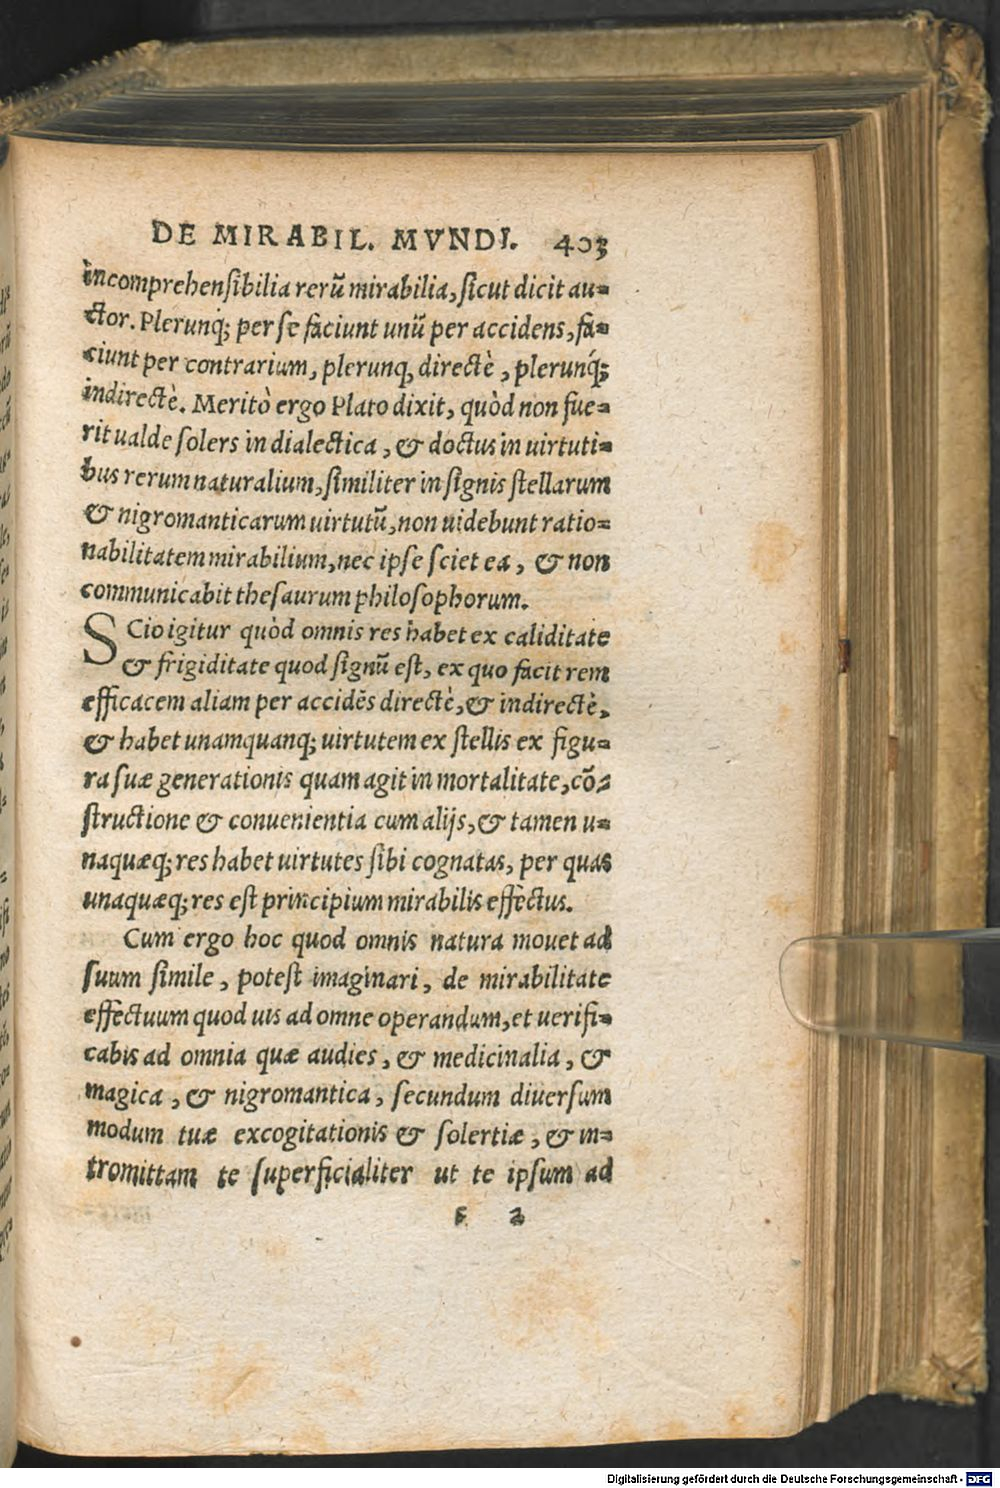 DE MIRABIL. MVNDI. 403
incomprehensibilia rerũ mirabilia, sicut dicit au-
ctor. Plerunq; per se faciunt unũ per accidens, fa-
ciunt per contrarium, plerunq, directè, plerunq́;
indirectè. Meritò ergo Plato dixit, quòd non fue-
rit ualde solers in dialectica, & doctus in uirtuti-
bus rerum naturalium, similiter in signis stellarum
& nigromanticarum uirtutũ, non uidebunt ratio-
nabilitatem mirabilium, nec ipse sciet ea, & non
communicabit thesaurum philosophorum.
SCio igitur quòd omnis res habet ex caliditate
& frigiditate quod signũ est, ex quo facit rem
efficacem aliam per accidẽs directè, & indirectè,
& habet unamquanq; uirtutem ex stellis ex figu-
ra suæ generationis quam agit in mortalitate, cõ-
structione & conuenientia cum alijs, & tamen u-
naquæq; res habet uirtutes sibi cognatas, per quas
unaquæq; res est principium mirabilis effectus.
Cum ergo hoc quod omnis natura mouet ad
suum simile, potest imaginari, de mirabilitate
effectuum quod uis ad omne operandum, et uerifi-
cabis ad omnia quæ audies, & medicinalia, &
magica, & nigromantica, secundum diuersum
modum tuæ excogitationis & solertiæ, & in-
tromittam te superficialiter ut te ipsum ad
2
Digitalisierung gefördert durch die Deutsche Forschungsgemeinschaft - DFG